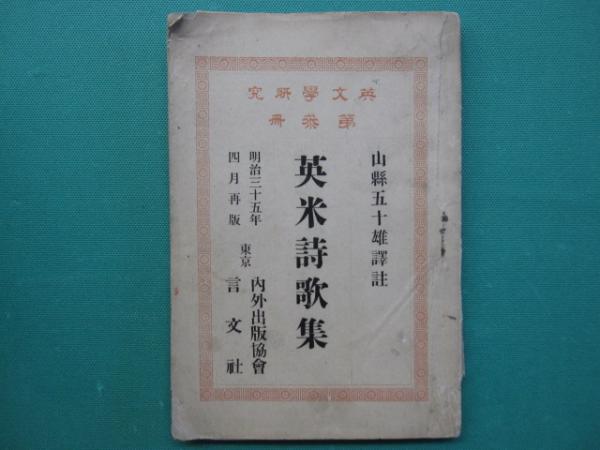 英文學研究
第叄冊
山縣五十雄譯註
英米詩歌集
明治三十五年
四月再版
東京
內外出版協會
言文社